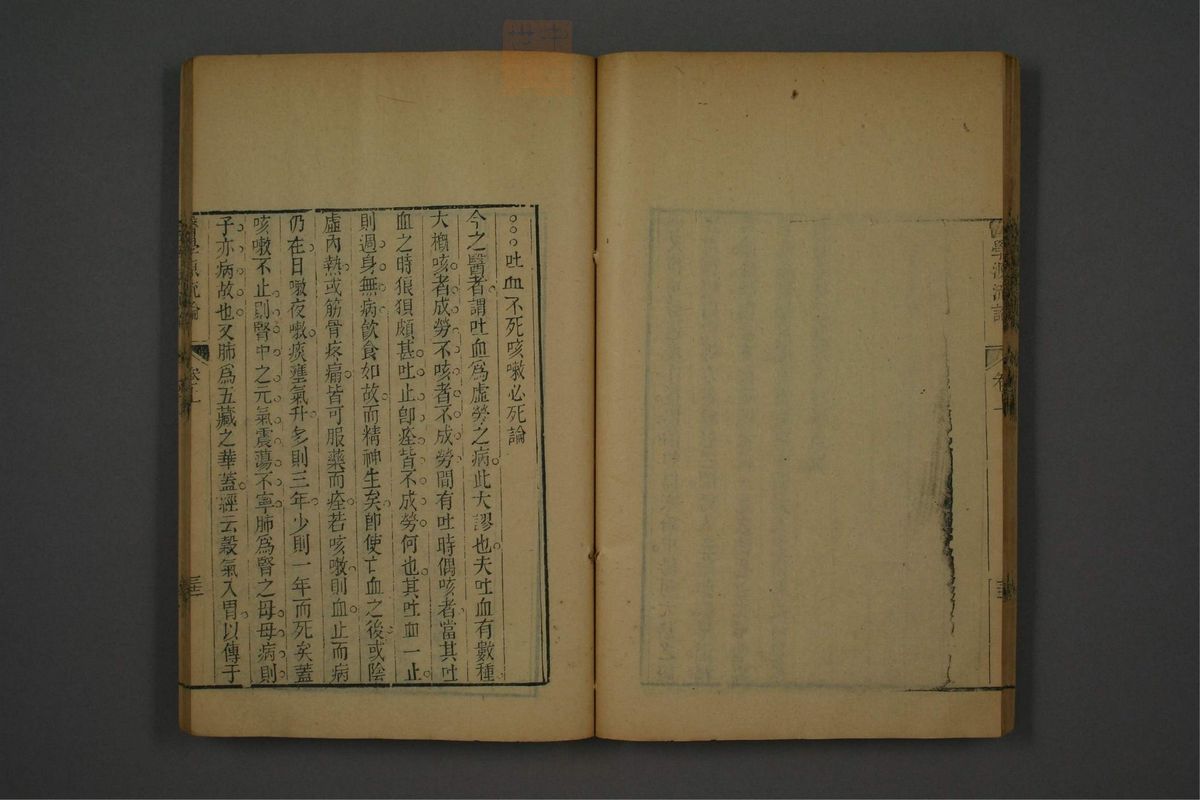 醫學源流論
卷一
三十二
吐血不死咳嗽必死論
今之醫者謂吐血爲虛勞之病此大謬也夫吐血有數種
大槪咳者成勞不咳者不成勞間有吐時偶咳者當其吐
血之時狼狽頗甚吐止卽痊皆不成勞何也其吐血一止
則週身無病飲食如故而精神生矣卽使亡血之後或陰
虛內熱或筋骨疼痛皆可服藥而痊若咳嗽則血止而病
仍在日嗽夜嗽痰壅氣升多則三年少則一年而死矣蓋
咳嗽不止則腎中之元氣震蕩不寧肺爲腎之母母病則
子亦病故也又肺爲五藏之華蓋經云穀氣入胃以傳于
醫學源流論
卷上
三十三